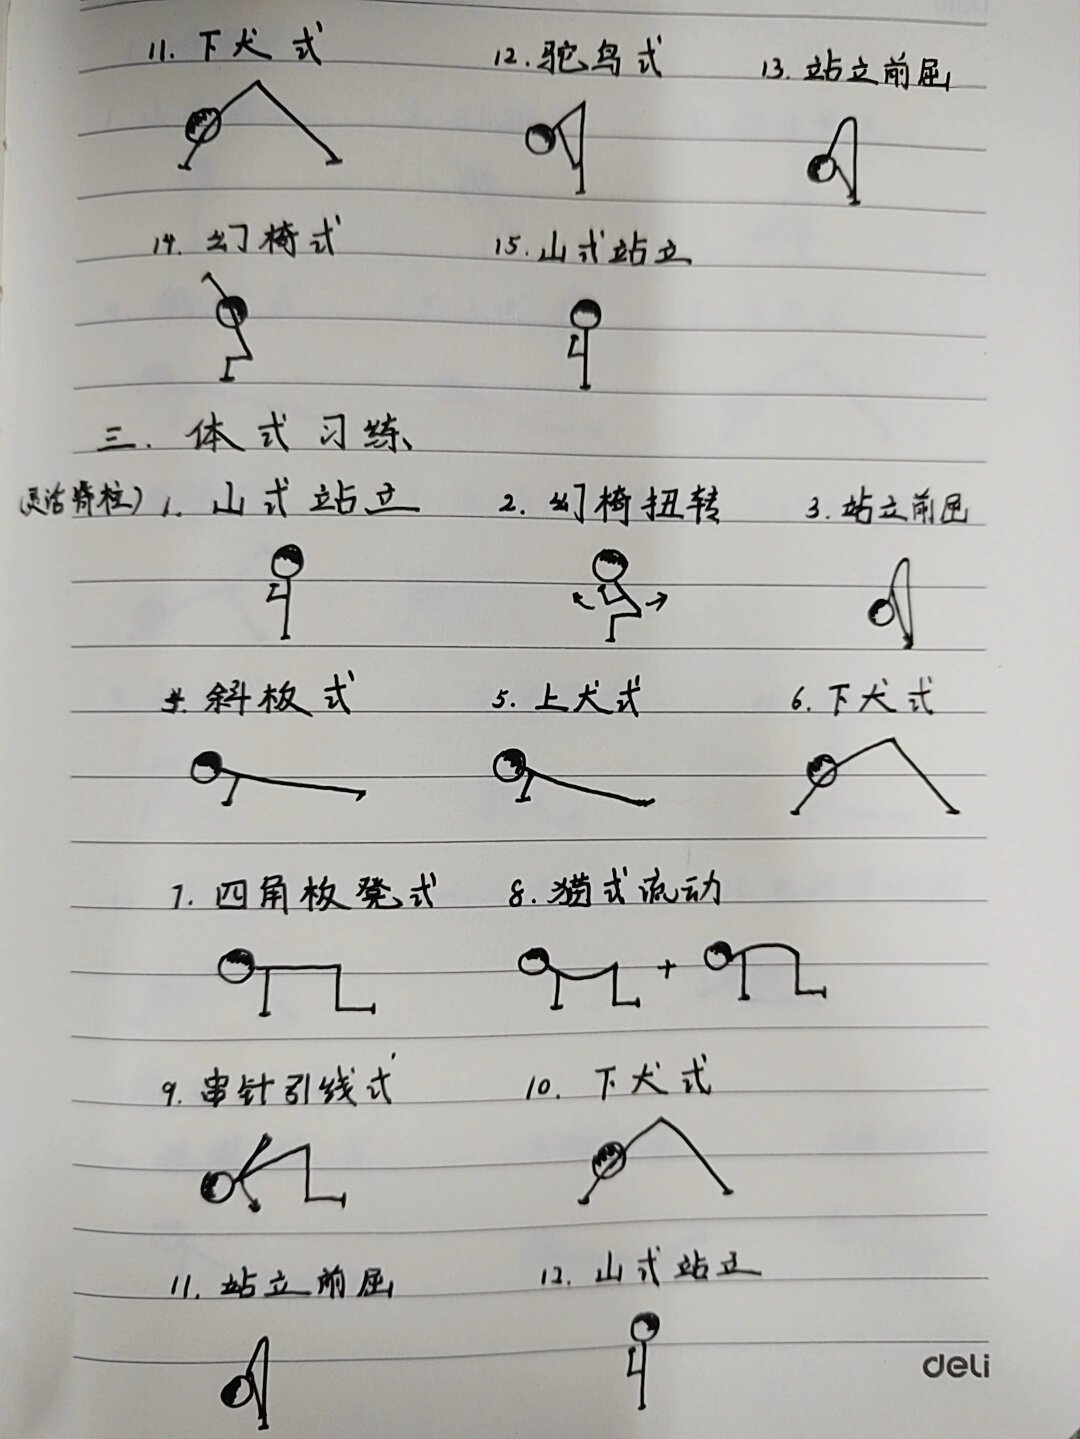 11. 下犬式 12. 驼鸟式 13. 站立前屈
14. 幻椅式 15. 山式站立
三. 体式习练
灵活脊柱) 1. 山式站立 2. 幻椅扭转 3. 站立前屈
4. 斜板式 5. 上犬式 6. 下犬式
7. 四角板凳式 8. 猫式流动
+
9. 串针引线式 10. 下犬式
11. 站立前屈 12. 山式站立
deli